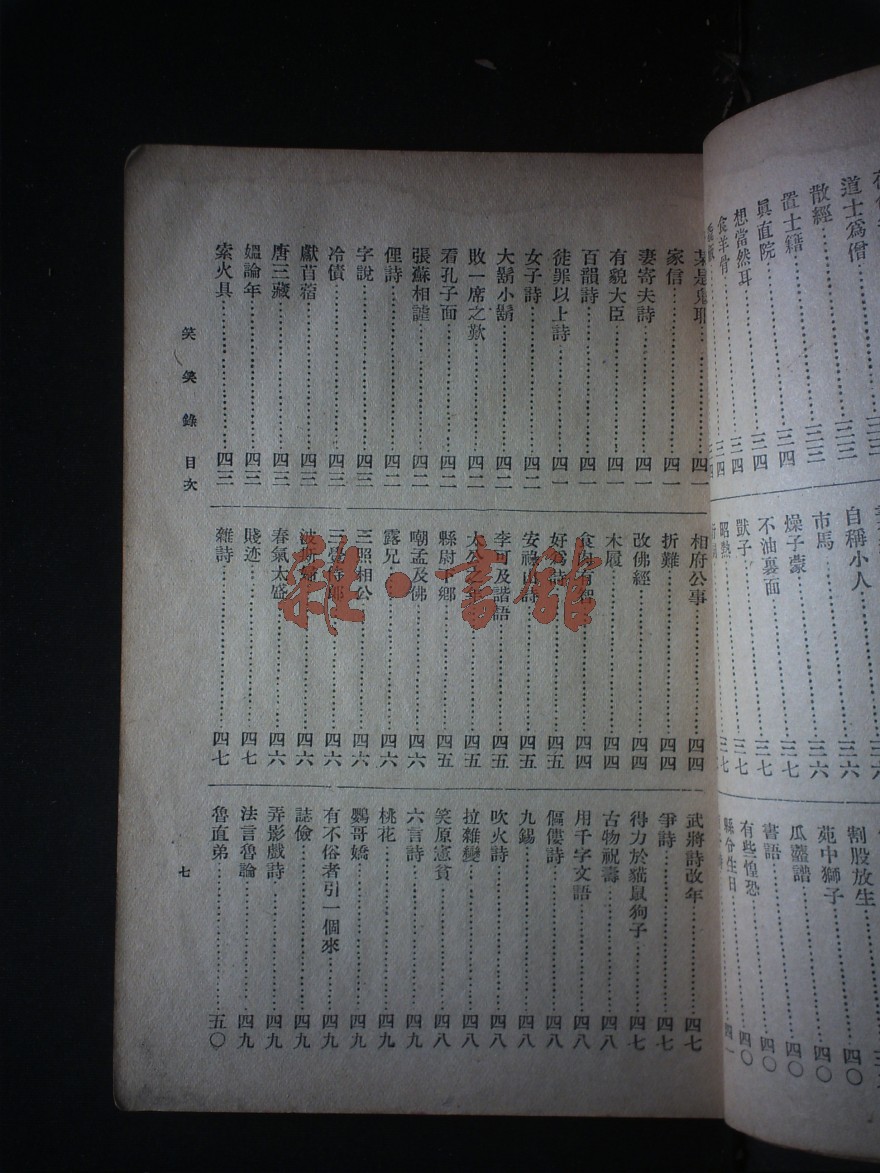 道士爲僧……三三
散經……三三
置士籍……三四
眞直院……三四
想當然耳……三四
食羊骨……三四
自稱小人……三六
市馬……三六
燥子蒙……三七
不油裏面……三七
獃子……三七
昭熱……三七
割股放生……四〇
苑中獅子……四〇
瓜虀譜……四〇
書語……四〇
有些惶恐……四〇
縣分生日……四一
某是鬼耶……四一
家信……四一
妻寄夫詩……四一
有貌大臣……四一
百韻詩……四一
徒罪以上詩……四一
女子詩……四二
大鬍小鬍……四二
敗一席之歡……四二
看孔子面……四二
張蘇相謔……四二
俚詩……四二
字說……四三
冷債……四三
獻苜蓿……四三
唐三藏……四三
媼論年……四三
索火具……四三
相府公事……四四
折難……四四
改佛經……四四
木履……四四
食肉有智……四四
好爲詩……四五
安祿山詩……四五
李可及諧語……四五
太公之年……四五
縣尉下鄉……四五
嘲孟及佛……四六
露兄……四六
三照相公……四六
三覺侍郎……四六
波斯婦……四六
春氣太盛……四六
賤迹……四七
雜詩……四七
武將詩改年……四七
爭詩……四七
得力於貓鼠狗子……四七
古物祝壽……四八
用千字文語……四八
傴僂詩……四八
九錫……四八
吹火詩……四八
拉雜變……四八
笑原憲貧……四八
六言詩……四九
桃花……四九
鸚哥嬌……四九
有不俗者引一個來……四九
誌儉……四九
弄影戲詩……四九
法言魯論……四九
魯直弟……五〇
笑笑錄 目次
七
雜·書館